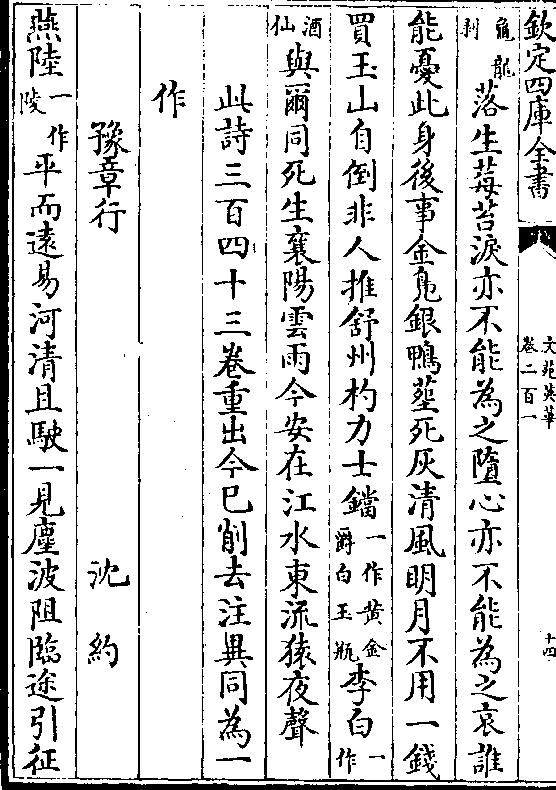 欽定四庫全書
文苑英華
卷二百一
十四
龜龍
剥落生莓苔淚亦不能為之墮心亦不能為之哀誰
能憂此身後事金鳬銀鴨塟死灰清風明月不用一錢
買玉山自倒非人推舒州杓力士鐺一作黄金爵白玉瓶李白一作
酒仙與爾同死生襄陽雲雨今安在江水東流猿夜聲
此詩三百四十三卷重出今已削去注異同為一
作
豫章行 沈約
燕陸一作陵平而遠易河清且駛一見塵波阻臨途引征